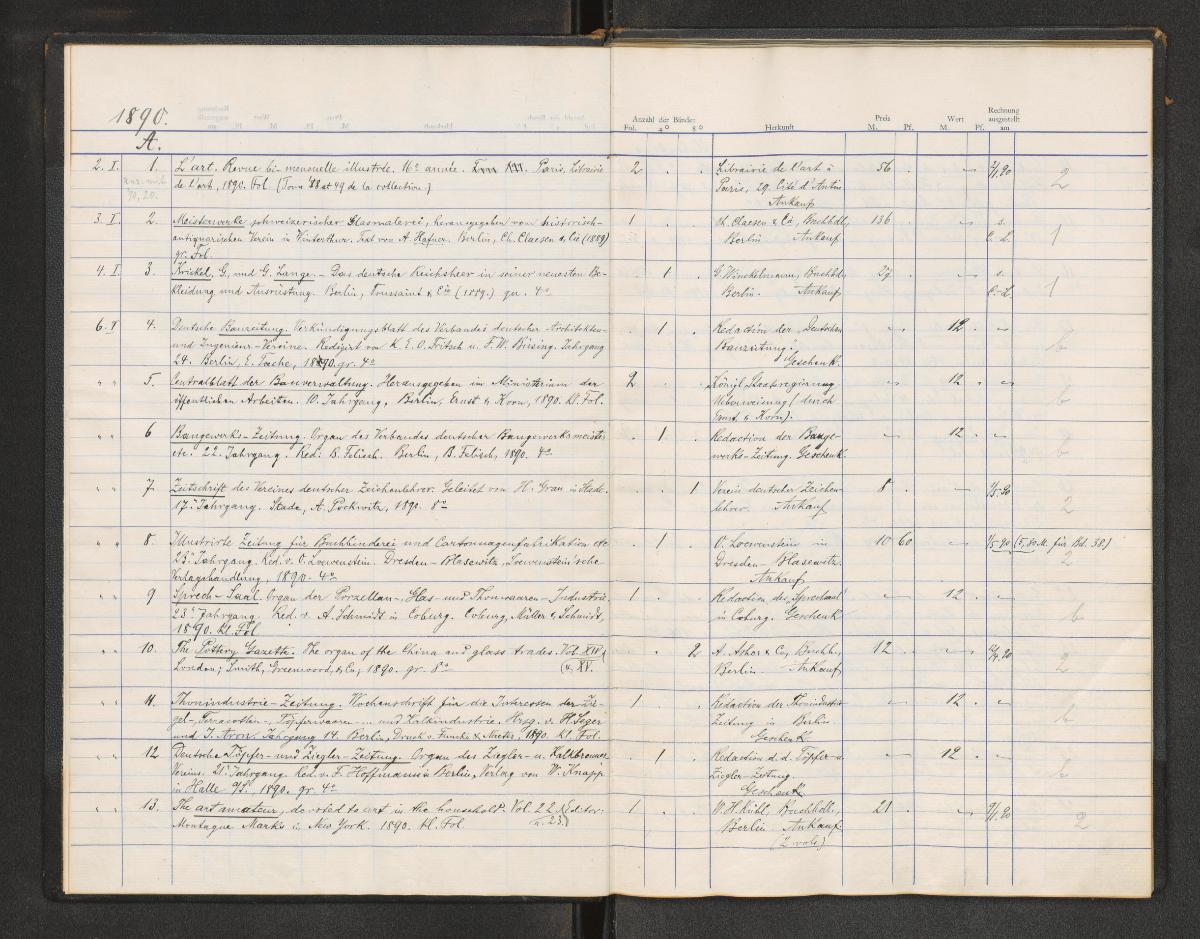 1890.
A.
Anzahl der Bände:
Fol. 4° 8°
Herkunft
Preis
M. Pf.
Wert
M. Pf.
Rechnung
ausgestellt
am
2. I. 1. L'art. Revue bi-mensuelle illustrée. 16e année. Paris, Librairie
de l'art, 1890. Fol. (Tome 48 et 49 de la collection.)
2 Librairie de l'art à
Paris, 29. Cité d'Antin
Ankauf
56 2
3. I. 2. Meisterwerke schweizerischer Glasmalerei, herausgegeben vom historisch-
antiquarischen Verein in Winterthur. Text von A. Hafner. Berlin, Ch. Claesen & Cie (1889)
gr. Fol.
1 Ch. Claesen & Cie, Buchhdl.,
Berlin Ankauf
136 — s.
C.-L. 1
4. I. 3. Krickel, G. und G. Lange. - Das deutsche Reichsheer in seiner neuesten Be-
kleidung und Ausrüstung. Berlin, Toussaint & Cie (1889.) qu. 4°
1 G. Winckelmann, Buchhdl.,
Berlin. Ankauf
29 — s.
C.-L. 1
6. I 4. Deutsche Bauzeitung. Verkündigungsblatt des Verbandes deutscher Architekten-
und Ingenieur-Vereine. Redigirt von K. E. O. Fritsch u. F. W. Büsing. Jahrgang
24. Berlin, E. Toeche, 1890. gr. 4°
1 Redaction der „Deutschen
Bauzeitung".
Geschenk.
— 12 — b
" " 5. Centralblatt der Bauverwaltung. Herausgegeben im Ministerium der
öffentlichen Arbeiten. 10. Jahrgang. Berlin, Ernst & Korn, 1890. kl. Fol.
2 Königl. Staatsregierung
Ueberweisung (durch
Ernst & Korn).
— 12 — b
" " 6 Baugewerks-Zeitung. Organ des Verbandes deutscher Baugewerksmeister
etc. 22. Jahrgang. Red: B. Felisch. Berlin, B. Felisch, 1890. 4°
1 Redaction der Bauge-
werks-Zeitung. Geschenk.
— 12 — b
" " 7. Zeitschrift des Vereines deutscher Zeichenlehrer. Geleitet von H. Grau in Stade.
17. Jahrgang. Stade, A. Pockwitz, 1890. 8°
1 Verein deutscher Zeichen-
lehrer. Ankauf
8 — 2
" " 8. Illustrirte Zeitung für Buchbinderei und Cartonnagenfabrikation etc
23. Jahrgang. Red. v. O. Loewenstein. Dresden-Blasewitz, Loewenstein'sche
Verlagshandlung, 1890. 4°
1 O. Loewenstein in
Dresden-Blasewitz.
Ankauf
10 60 — (5,80 M. für Bd. 38.)
2
" " 9 Sprech-Saal. Organ der Porzellan-, Glas- und Thonwaaren-Industrie.
23. Jahrgang. Red. v. A. Schmidt in Coburg. Coburg, Müller & Schmidt,
1890. kl. Fol.
1 Redaction des „Sprechsaal"
in Coburg. Geschenk
— 12 — b
" " 10. The Pottery Gazette. The organ of the China and glass trades. Vol. XIV
London; Smith, Greenwood, & Co, 1890. gr. 8° (u. XV.
2 A. Asher & Co, Buchh.,
Berlin. Ankauf
12 — 2
" " 11. Thonindustrie-Zeitung. Wochenschrift für die Interessen der Zie-
gel-, Terracotten-, Töpferwaaren-... und Kalkindustrie. Hrsg. v. H. Seger
und J. Aron. Jahrgang 14. Berlin, Druck v. Funcke & Naeter, 1890. kl. Fol.
1 Redaction der Thonindustrie
Zeitung in Berlin
Geschenk
— 12 — b
" " 12 Deutsche Töpfer- und Ziegler-Zeitung. Organ des Ziegler- u. Kalkbrenner
Vereins. 21. Jahrgang. Red. v. F. Hoffmann in Berlin, Verlag von W. Knapp
in Halle a/S. 1890. gr. 4°
1 Redaction d. d. Töpfer- u.
Ziegler-Zeitung.
Geschenk
— 12 — b
" " 13. The art amateur, devoted to art in the household. Vol. 22 Editor:
Montague Marks, New York. 1890. kl. Fol. u. 23)
1 W. H. Kühl, Buchhdl.,
Berlin Ankauf.
(2 vols)
21 — 2